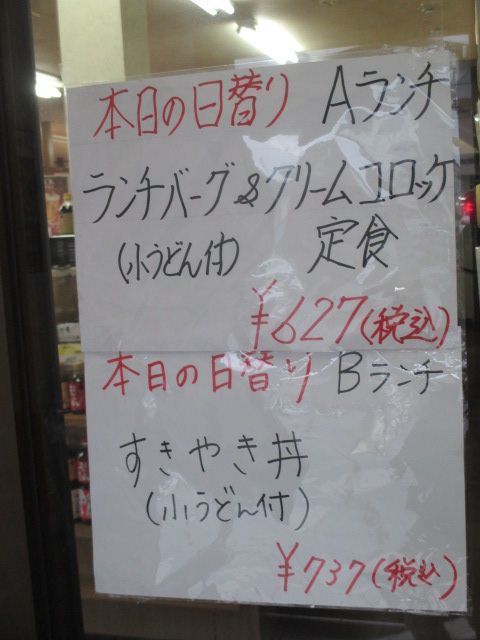 本日の日替り Aランチ
ランチバーグ&クリームコロッケ
(小うどん付) 定食
¥627(税込)
本日の日替り Bランチ
すきやき丼
(小うどん付)
¥737(税込)